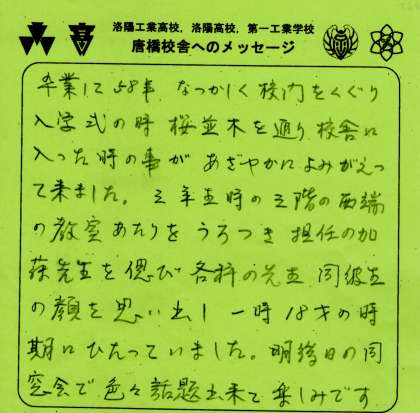 洛陽工業高校，洛陽高校，第一工業学校
唐橋校舎へのメッセージ
卒業して58年 なつかしく校内をくぐり
入学式の時 桜並木を通り校舎に
入った時の事が あざやかによみがえっ
て来ました。 三年生時の三階の西端
の教室あたりをうろつき 担任の加
先生を偲び 各科の先生 同級生
の顔を思い出し 一時 18才の時
期にひたっていました。明後日の同
窓会で色々話題出来て楽しみです